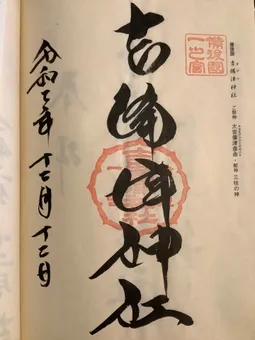 備後國
一之宮
備後国 吉備津神社
ご祭神 大吉備津彦命・配神 三柱の神
吉備津神社
令和六年 十一月 十二日